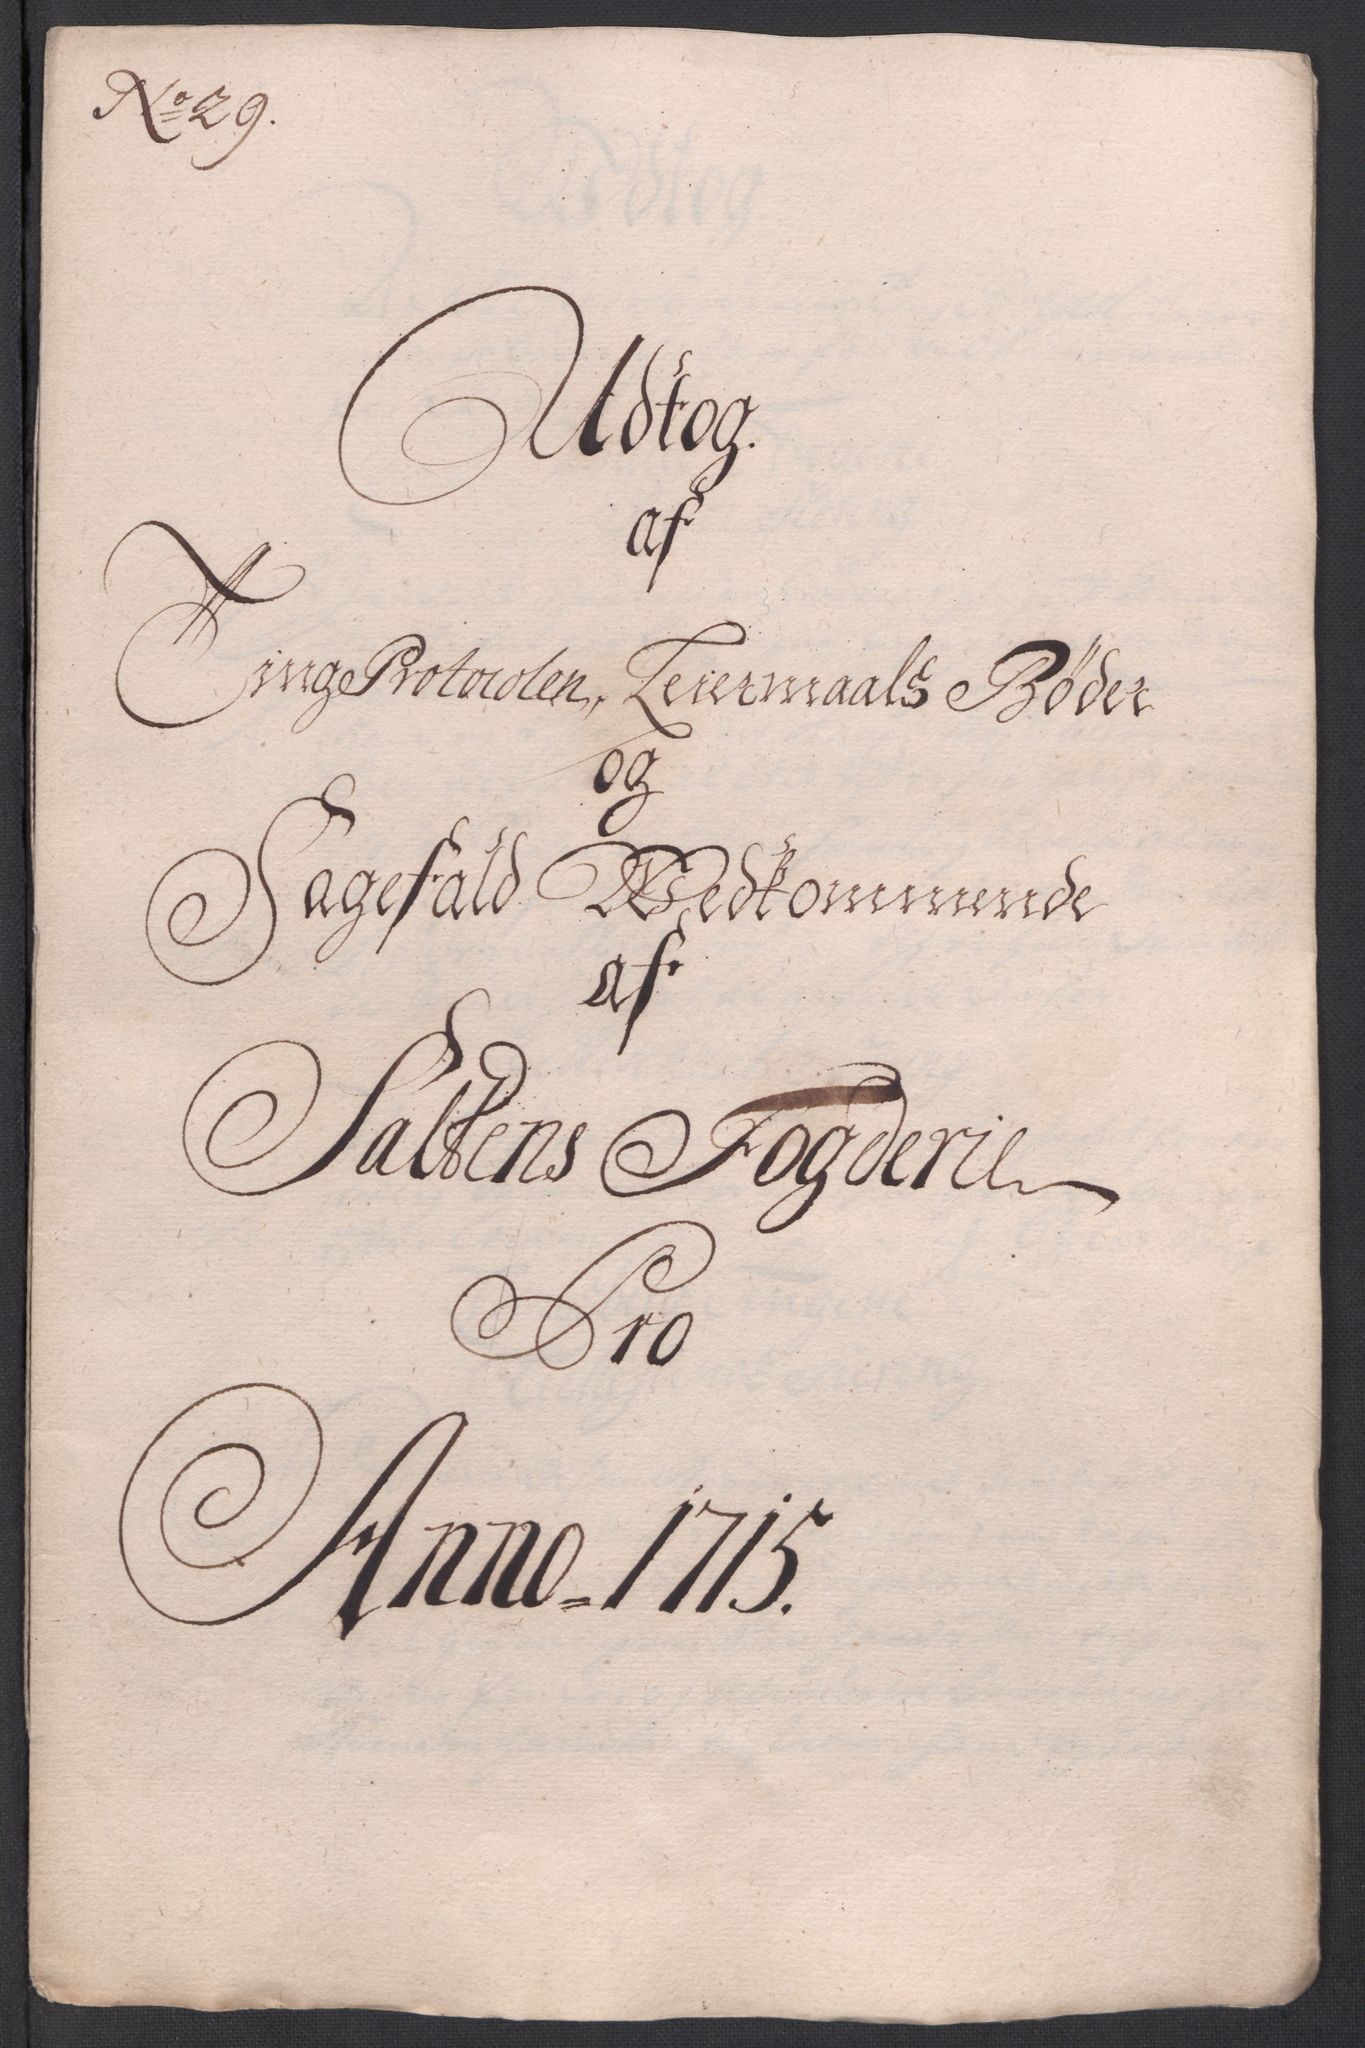 No 29.
Udtog.
af
TingeProtocolen, Leiermaals Bøder
og
Sagefald Wedkommende
af
Saltens Fogderie
Pro
Anno = 1715.